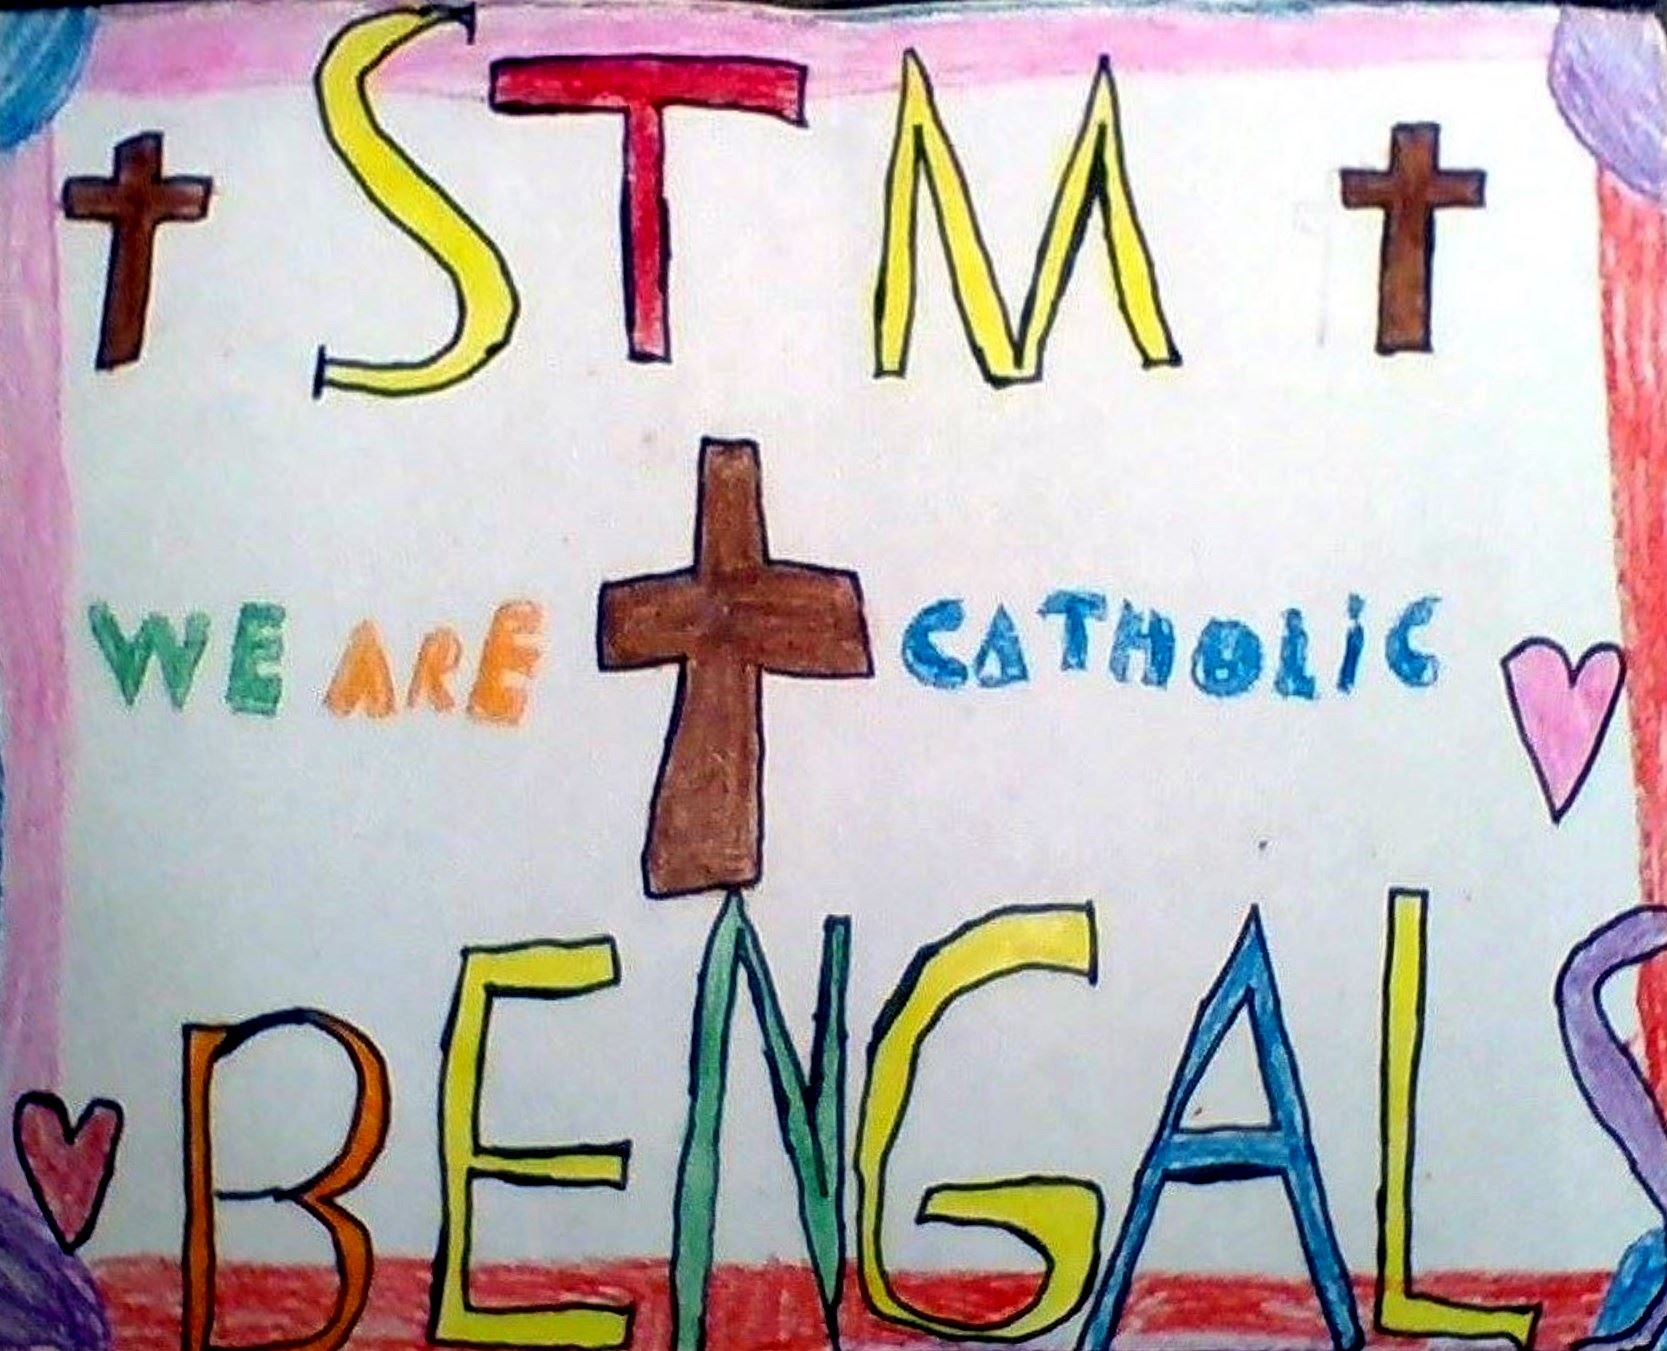 STM
WE ARE CATHOLIC
BENGALS